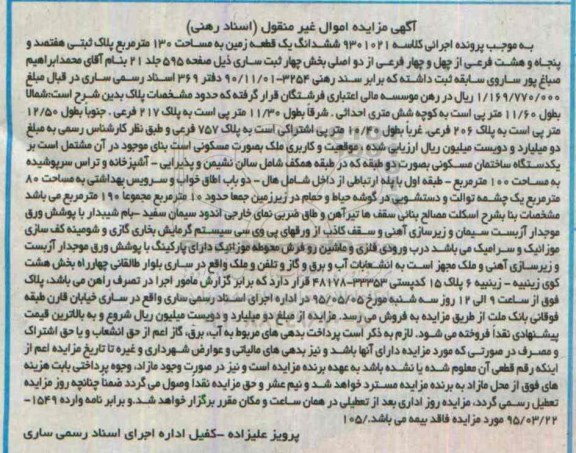 آگهی مزایده اموال غیر منقول (اسناد رهنی)
به موجب پرونده اجرائی کلاسه ۹۳۰۱۰۲۱ ششدانگ یک قطعه زمین به مساحت ۱۳۰ مترمربع پلاک ثبتی هفتصد و
پنجاه و هشت فرعی از چهل و چهار فرعی از دو اصلی بخش چهار ثبت ساری ذیل صفحه ۵۹۵ جلد ۲۱ بنام آقای محمدابراهیم
صباغ پور ساروی سابقه ثبت داشته که برابر سند رهنی ۳۲۵۴-۹۰/۱۱/۰۱ دفتر ۳۶۹ اسناد رسمی ساری در قبال مبلغ
۱/۱۶۹/۷۷۰/۰۰۰ ریال در رهن موسسه مالی اعتباری فرشتگان قرار گرفته که حدود مشخصات پلاک بدین شرح است:شمالا
بطول ۱۱/۶۰ متر پی است به کوچه شش متری احداثی . شرقا بطول ۱۱/۳۰ متر پی است به پلاک ۲۱۷ فرعی . جنوبا بطول ۱۲/۵۰
متر پی است به پلاک ۲۰۶ فرعی. غربا بطول ۱۰/۲۰ متر پی اشتراکی است به پلاک ۷۵۷ فرعی و طبق نظر کارشناس رسمی به مبلغ
دو میلیارد و دویست میلیون ریال ارزیابی شده . موقعیت و کاربری ملک بصورت مسکونی است بنای موجود در آن مشتمل است بر
یکدستگاه ساختمان مسکونی بصورت دو طبقه که در طبقه همکف شامل سالن نشیمن و پذیرایی - آشپزخانه و تراس سرپوشیده
به مساحت ۱۰۰ مترمربع - طبقه اول با پله ارتباطی از داخل شامل هال - دو باب اطاق خواب و سرویس بهداشتی به مساحت ۸۰
مترمربع یک چشمه توالت و دستشویی در گوشه حیاط و حمام در زیرزمین جمعا حدود ۱۰ مترمربع مجموعا ۱۹۰ مترمربع می باشد
مشخصات بنا بشرح اسکلت مصالح بنائی سقف ها تیرآهن و طاق ضربی نمای خارجی اندود سیمان سفید -بام شیبدار با پوشش ورق
موجدار آزبست سیمان و زیرسازی آهنی و سقف کاذب از ورقهای پی وی سی سیستم گرمایش بخاری گازی و شومینه کف سازی
موزائیک و سرامیک می باشد درب ورودی فلزی و ماشین رو فرش محوطه موزائیک دارای پارکینگ با پوشش ورق موجدار آزبست
و زیرسازی آهنی و ملک مجهز است به انشعابات آب و برق و گاز و تلفن و ملک واقع در ساری بلوار طالقانی چهارراه بخش هشت
کوی زینبیه - زینبیه ۶ پلاک ۱۵ کدپستی ۳۳۳۵۳-۴۸۱۷۸ قرار دارد که برابر گزارش مأمور اجرا در تصرف راهن می باشد، پلاک
فوق از ساعت ۹ الی ۱۲ روز سه شنبه مورخ ۹۵/۰۵/۰۵ در اداره اجرای اسناد رسمی ساری واقع در ساری خیابان قارن طبقه
فوقانی بانک ملت از طریق مزایده به فروش می رسد. مزایده از مبلغ دو میلیارد و دویست میلیون ریال شروع و به بالاترین قیمت
پیشنهادی نقدا فروخته می شود. لازم به ذکر است پرداخت بدهی های مربوط به آب، برق، گاز اعم از حق انشعاب و یا حق اشتراک
و مصرف در صورتی که مورد مزایده دارای آنها باشد و نیز بدهی های مالیاتی و عوارض شهرداری و غیره تا تاریخ مزایده اعم از
اینکه رقم قطعی آن معلوم شده یا نشده باشد به عهده برنده مزایده است و نیز در صورت وجود مازاد، وجوه پرداختی بابت هزینه
های فوق از محل مازاد به برنده مزایده مسترد خواهد شد و نیم عشر و حق مزایده نقدا وصول می گردد ضمنا چنانچه روز مزایده
تعطیل رسمی گردد، مزایده روز اداری بعد از تعطیلی در همان ساعت و مکان مقرر برگزار خواهد شد.و برابر نامه وارده ۱۵۴۹-
۹۵/۰۳/۲۲ مورد مزایده فاقد بیمه می باشد./۱۰۵
پرویز علیزاده -کفیل اداره اجرای اسناد رسمی ساری